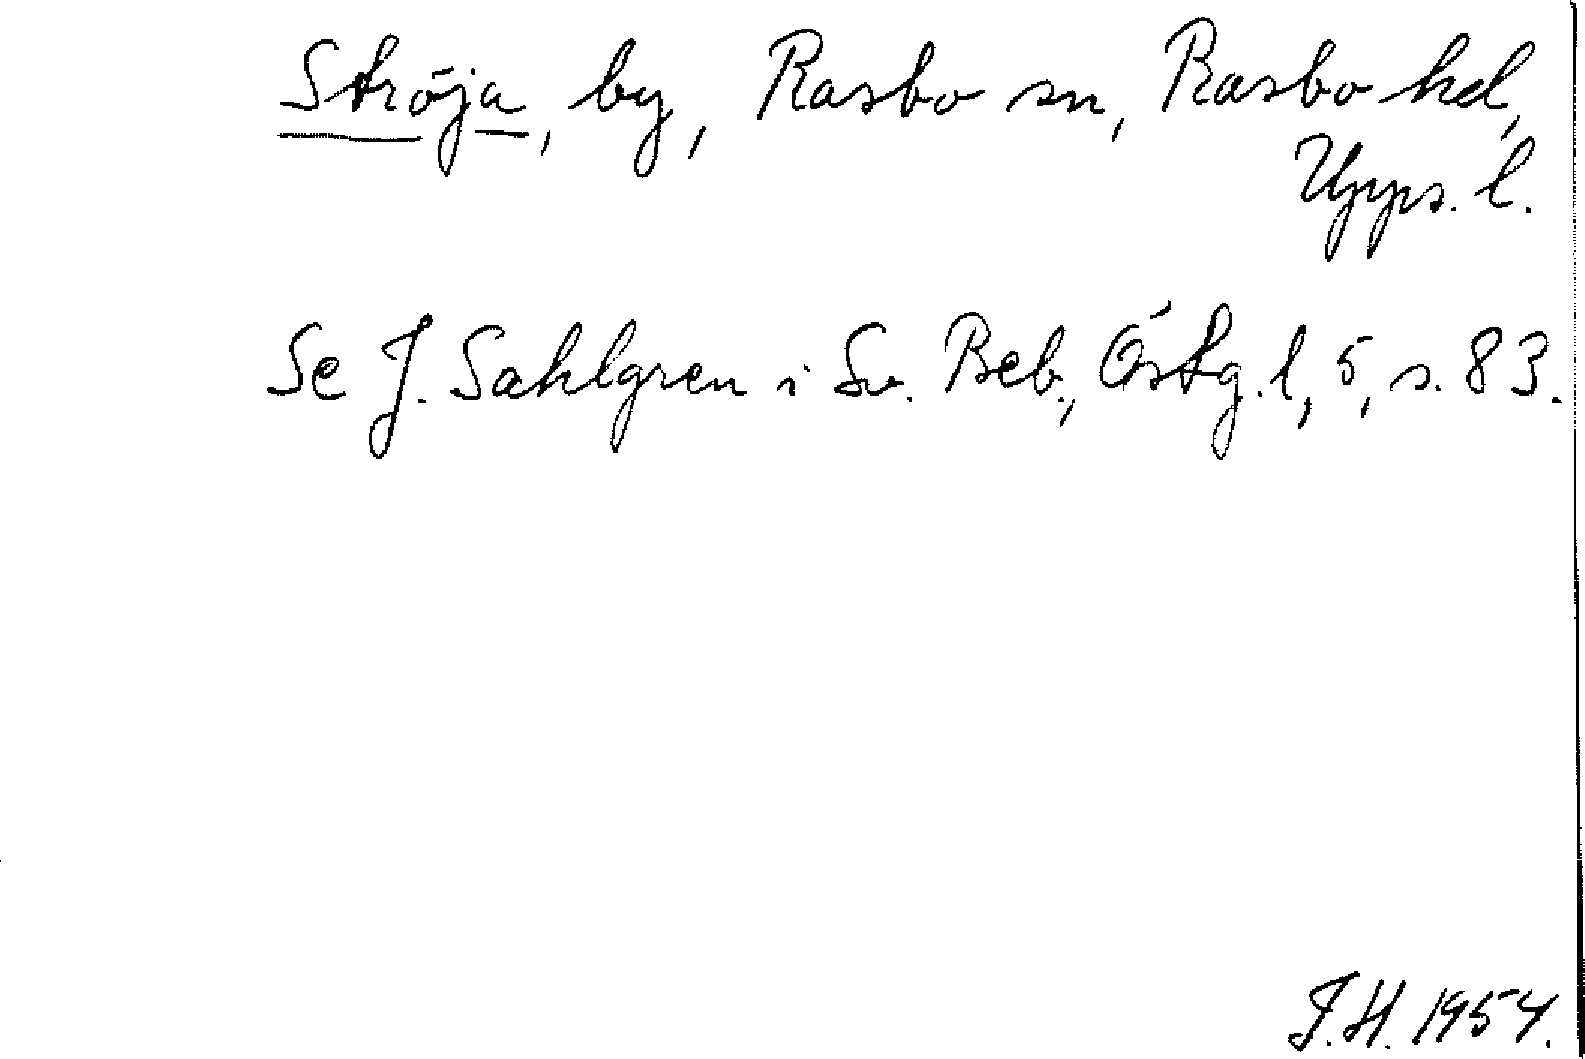 Ströja, by, Rasbo sn, Rasbo hd,
Upps. l.
Se J. Sahlgren i Sv. Beb., Östg. l, 5, s. 83.
J.H. 1954.